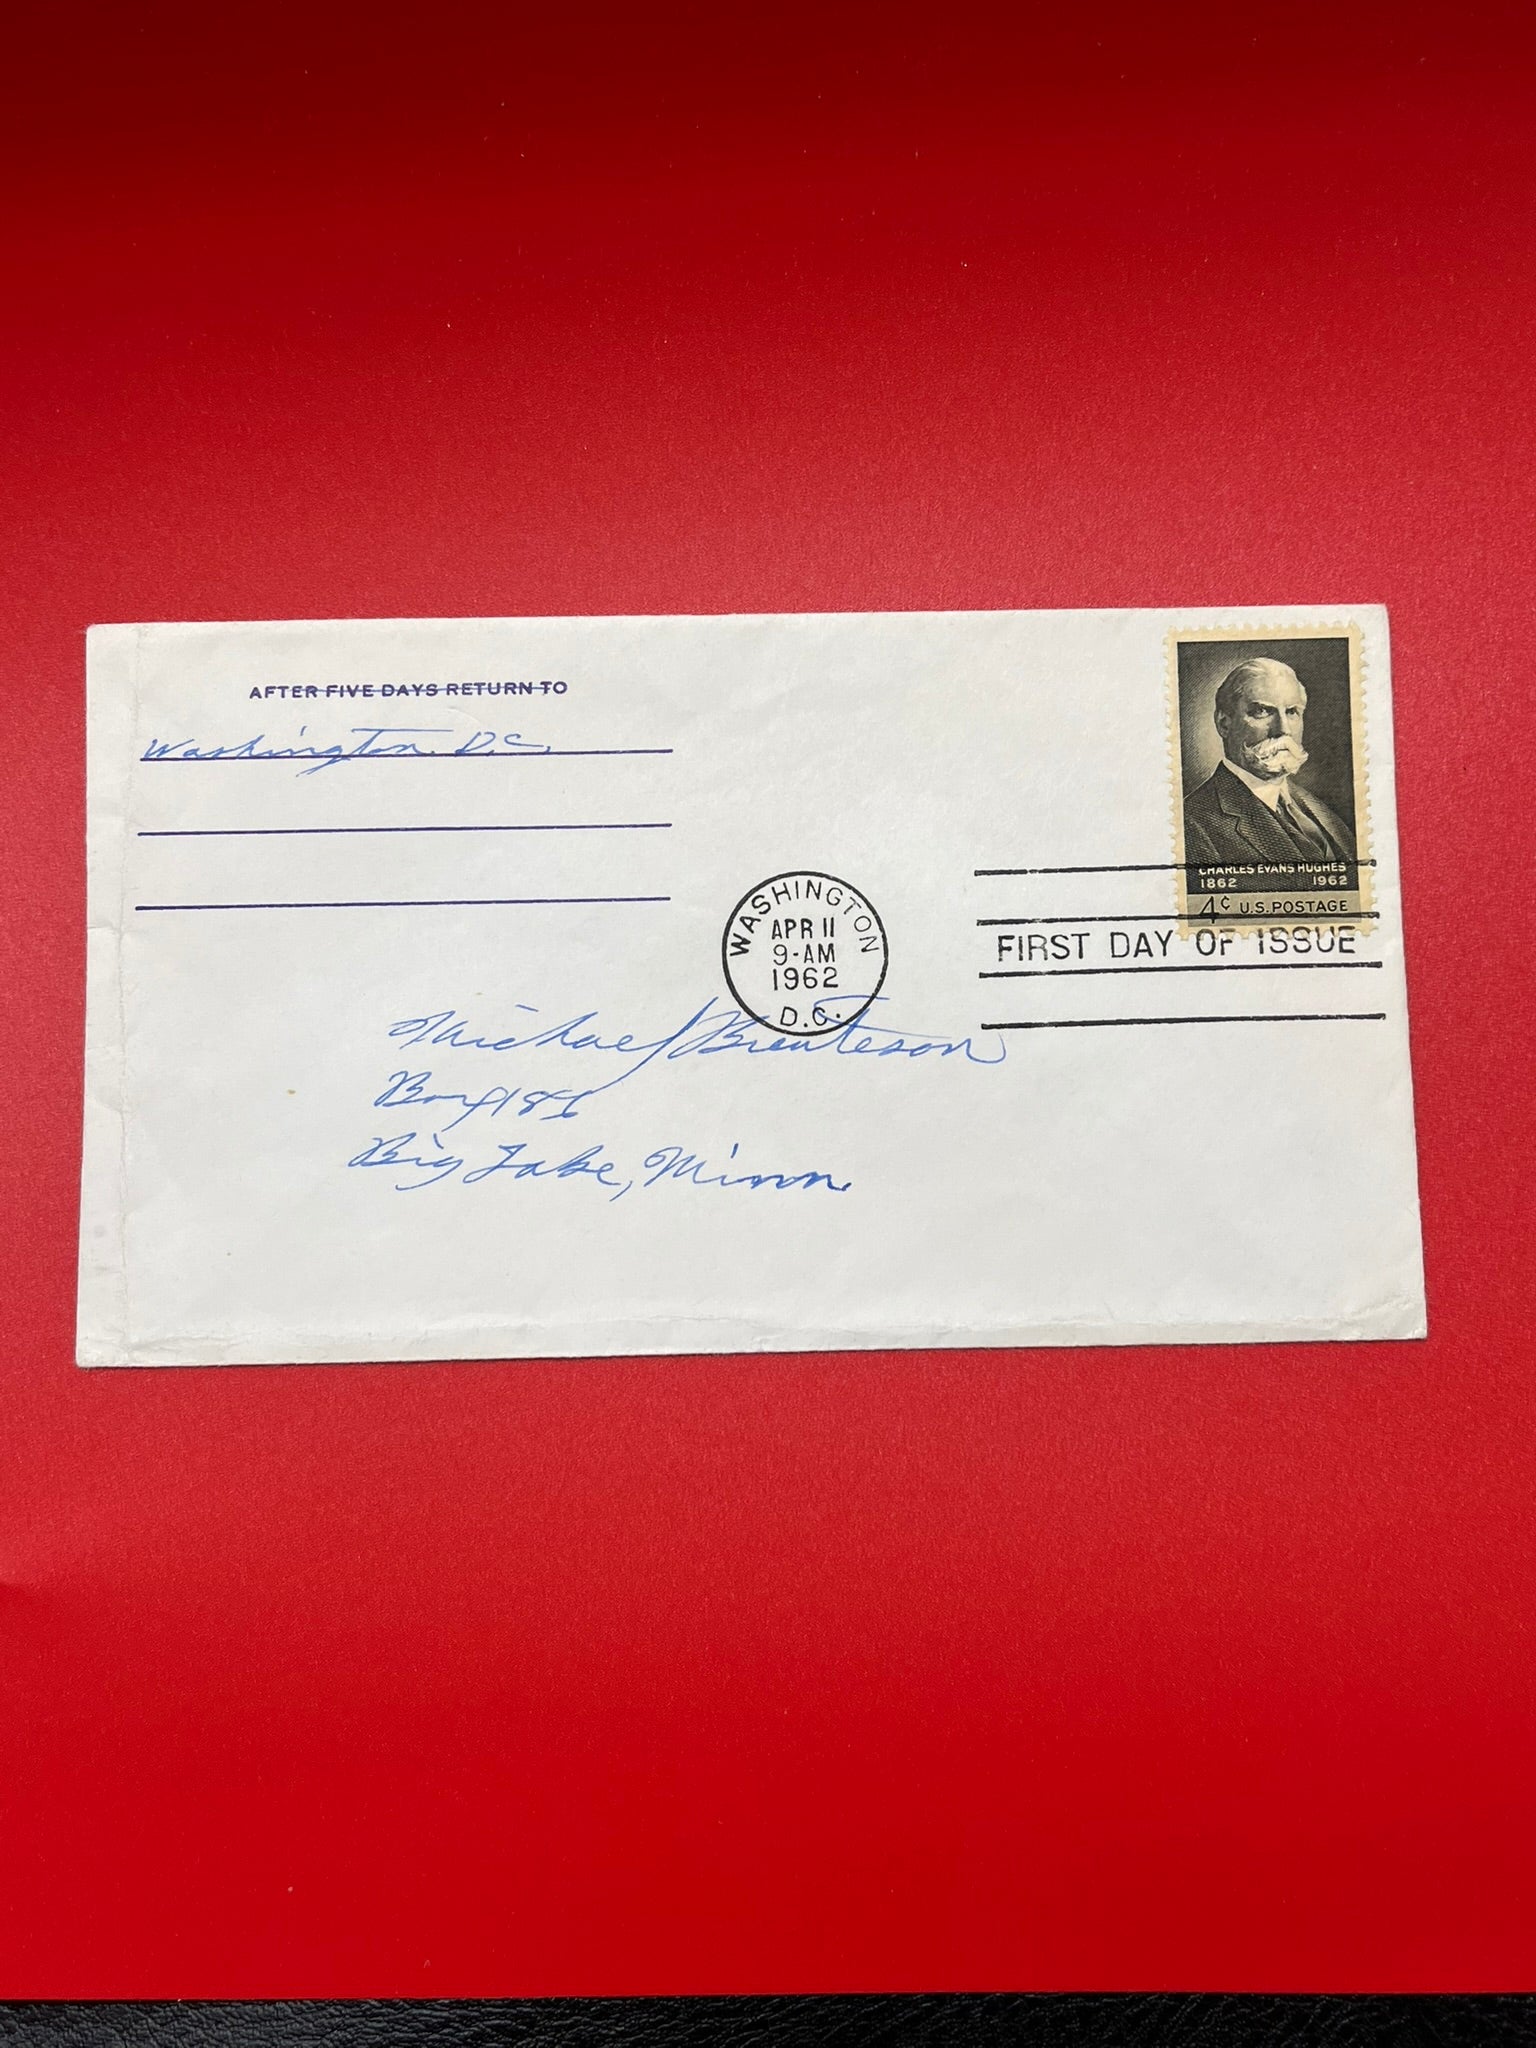 AFTER FIVE DAYS RETURN TO
Washington. D.C.
CHARLES EVANS HUGHES
1862 1962
4¢ U.S. POSTAGE
WASHINGTON
APR 11
9-AM
1962
D.C.
FIRST DAY OF ISSUE
Michael
Box
Big Lake, Minn.